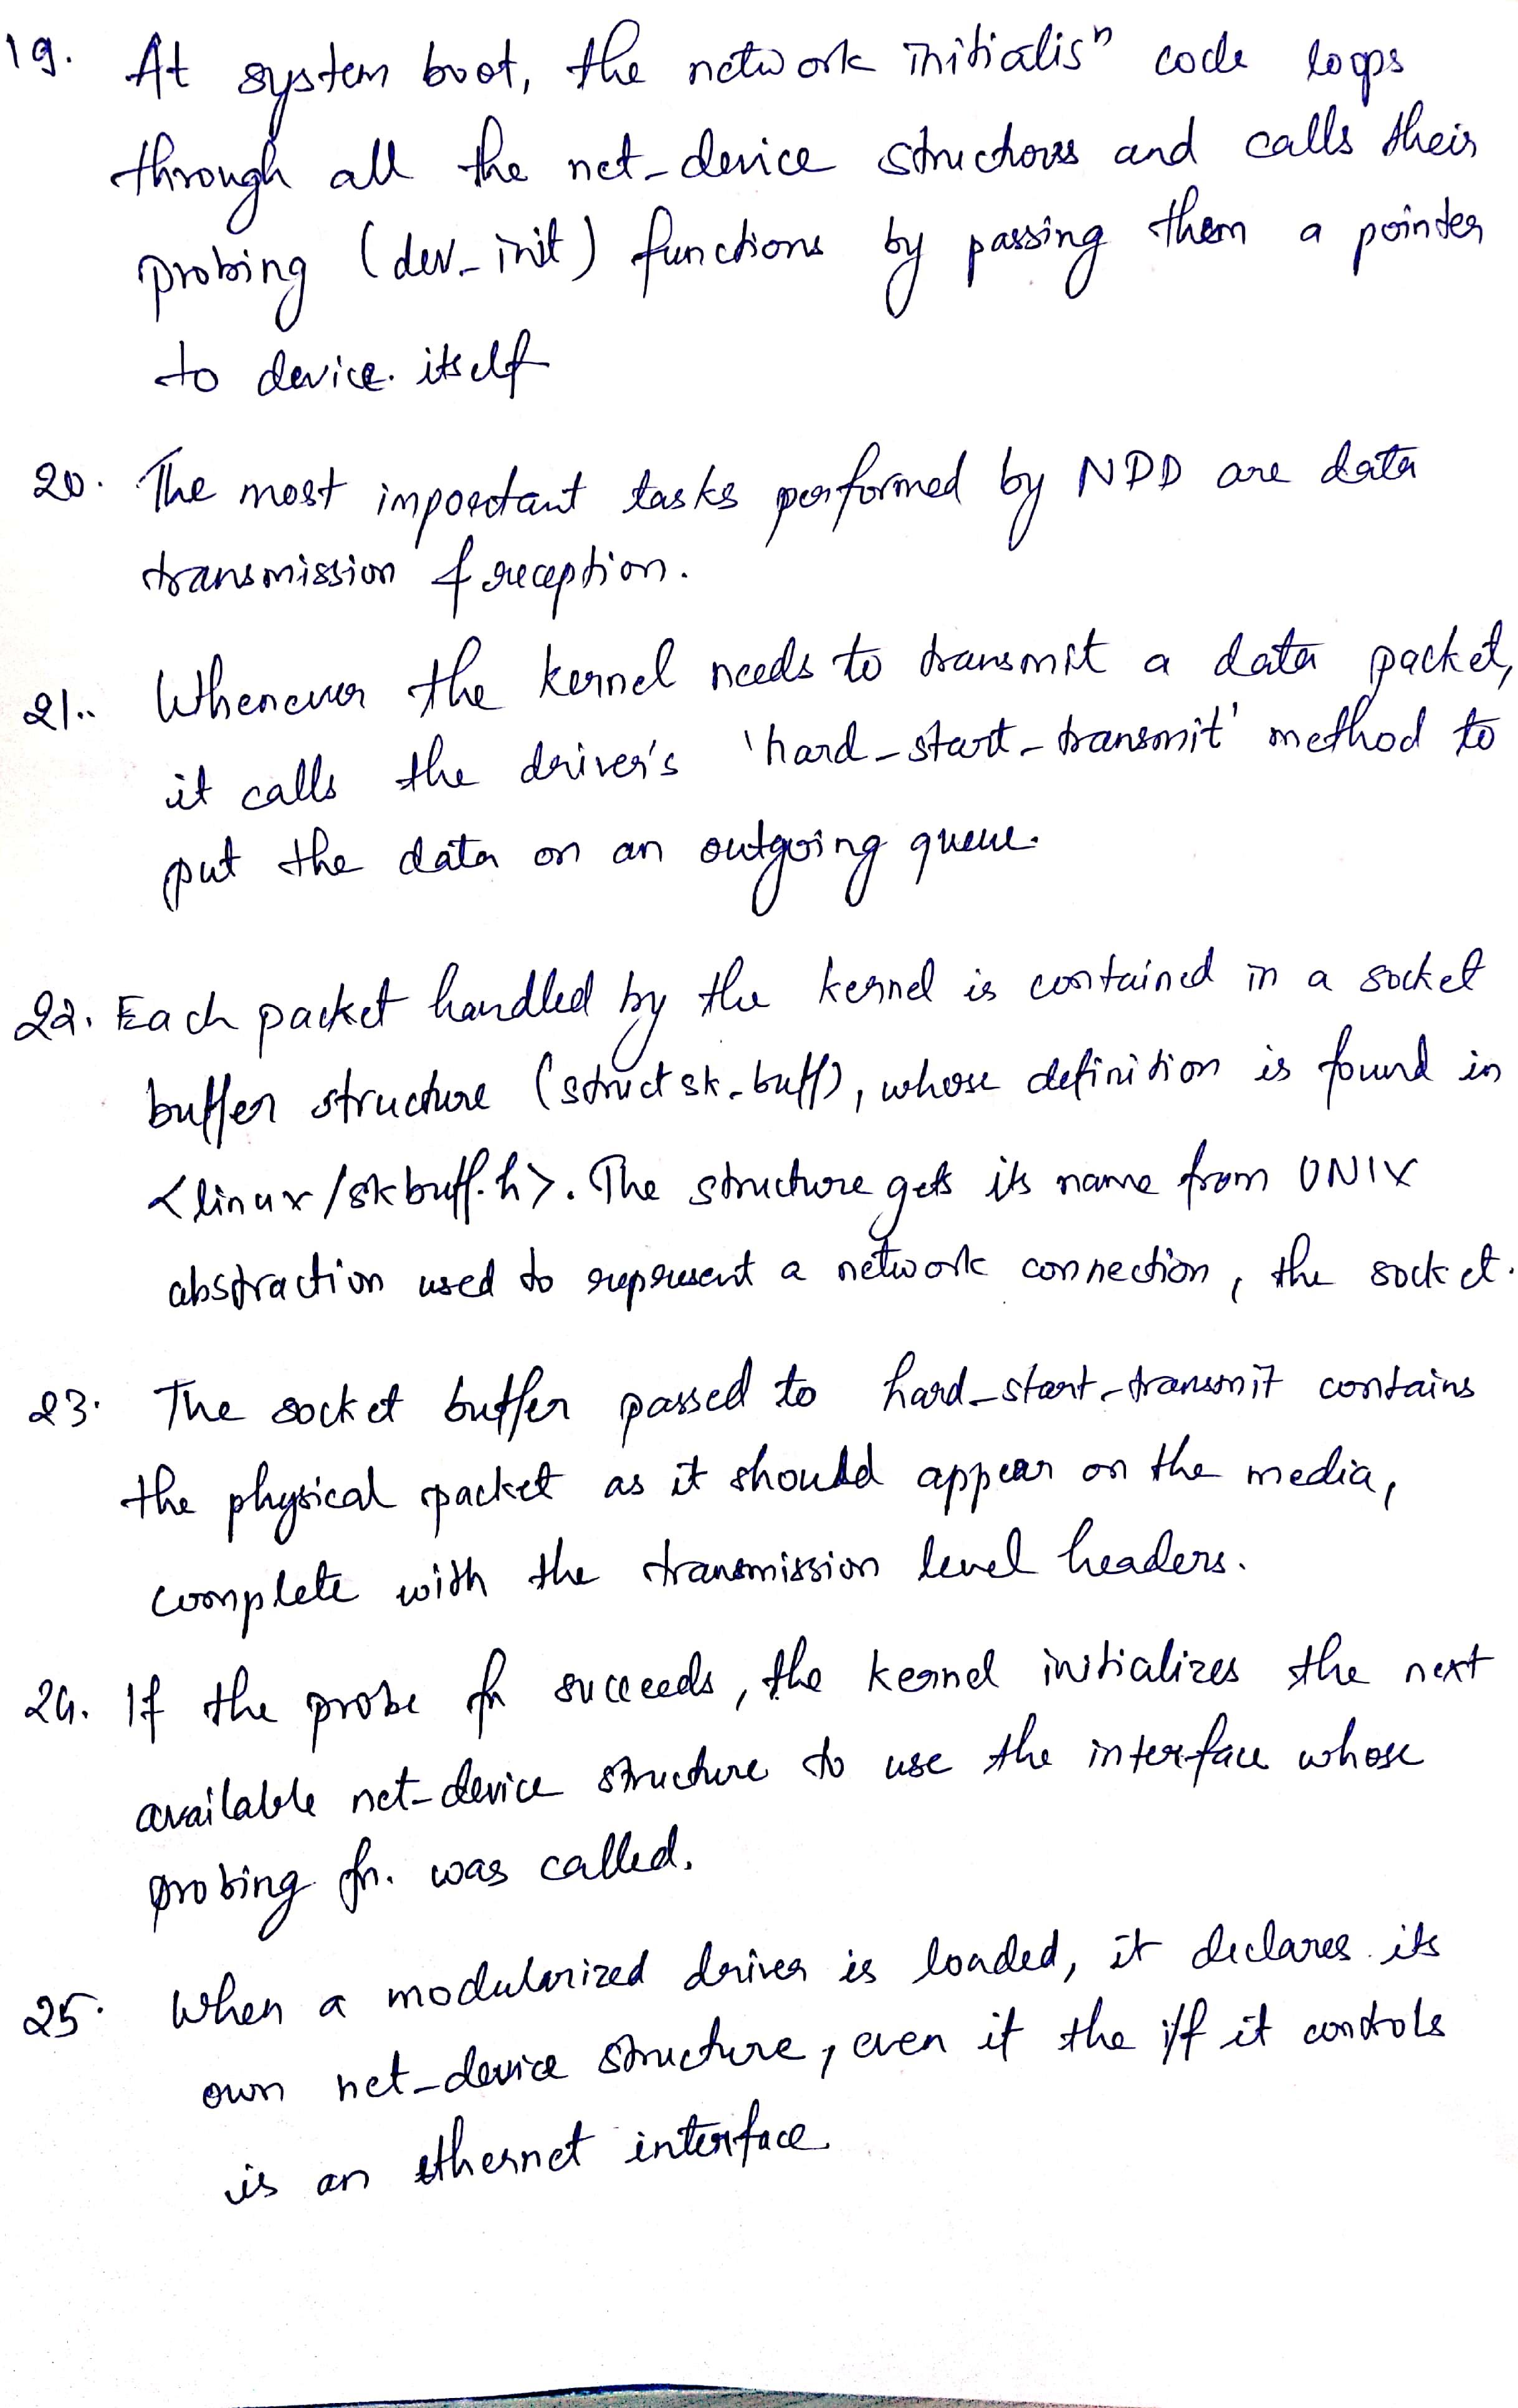 19. At system boot, the network initialisⁿ code loops
through all the net-device structures and calls their
probing (dev-init) functions by passing them a pointer
to device itself
20. The most important tasks performed by NDD are data
transmission & reception.
21. Whenever the kernel needs to transmit a data packet,
it calls the driver's 'hard-start-transmit' method to
put the data on an outgoing queue.
22. Each packet handled by the kernel is contained in a socket
buffer structure (struct sk-buff), whose definition is found in
<linux/skbuff.h>. The structure gets its name from UNIX
abstraction used to represent a network connection, the socket.
23. The socket buffer passed to hard-start-transmit contains
the physical packet as it should appear on the media,
complete with the transmission level headers.
24. If the probe fn succeeds, the kernel initializes the next
available net-device structure to use the interface whose
probing fn. was called.
25. When a modularized driver is loaded, it declares its
own net-device structure, even if the i/f it controls
is an ethernet interface